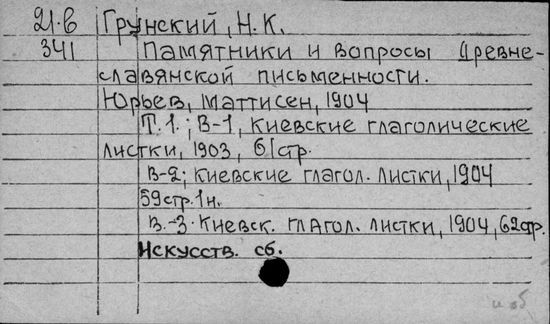 21.в Грунский, Н.К.
341 Памятники и вопросы древне-
славянской письменности.
Юрьев, Маттисен, 1904
Т.1.; В-1, Киевские глаголические
листки, 1903, 61стр.
В-2; Киевские глагол. листки, 1904
59стр.1н.
В.-3. Киевск. глагол. листки, 1904, 62стр.
Искусств. сб.